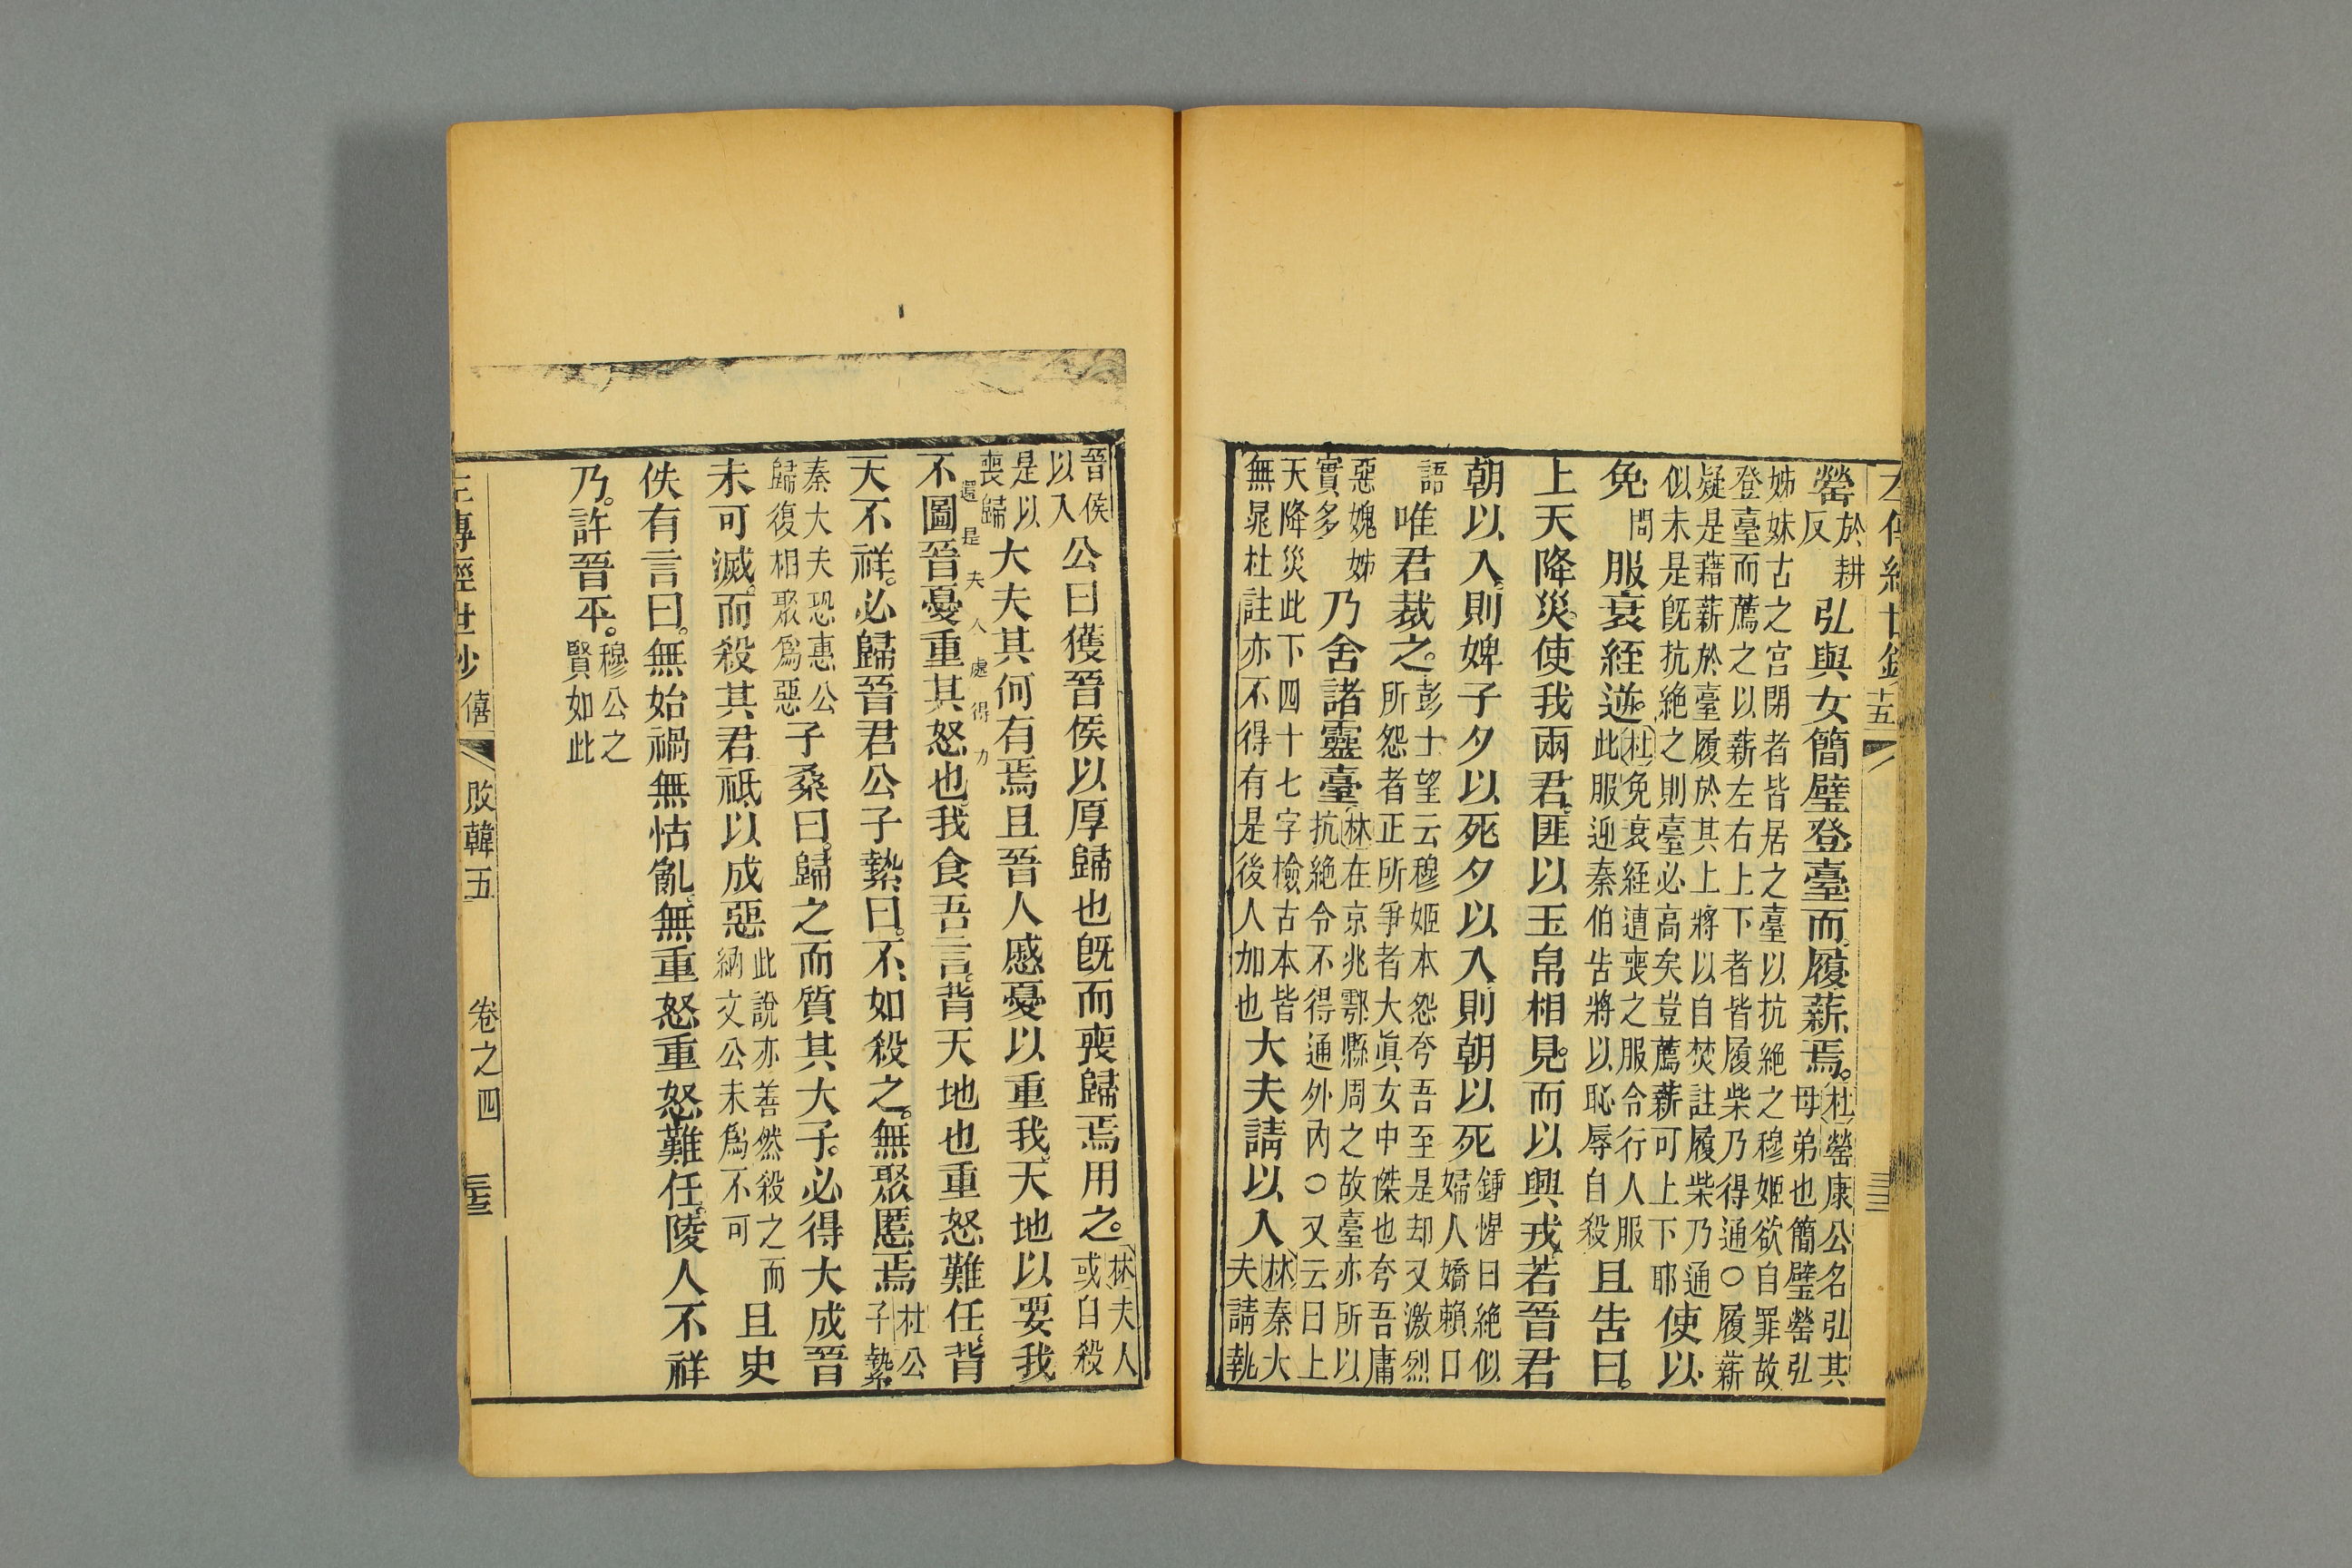 左傳經世鈔 十五
罃於耕反弘與女簡璧登臺而履薪焉。杜罃康公名弘其母弟也簡璧罃弘
姊妹古之宮閉者皆居之臺以抗絶之穆姬欲自罪故登臺而薦之以薪左右上下者皆履柴乃得通○履薪
疑是藉薪於臺履於其上將以自焚註履柴乃通似未是旣抗絶之則臺必高矣豈薦薪可上下耶使以
免問服衰絰逆。杜免衰絰遭喪之服令行人服此服迎秦伯告將以恥辱自殺且告曰。
上天降災。使我兩君匪以玉帛相見。而以興戎若晉君
朝以入。則婢子夕以死夕以入則朝以死鍾惺曰絶似婦人嬌賴口
語唯君裁之。彭士望云穆姬本怨夸吾至是却又激烈所怨者正所爭者大眞女中傑也夸吾庸
惡媿姊實多乃舍諸靈臺林在京兆鄠縣周之故臺亦所以抗絶令不得通外內○又云曰上
天降災此下四十七字檢古本皆無晁杜註亦不得有是後人加也大夫請以入林秦大夫請執
晉侯以入公曰獲晉侯以厚歸也旣而喪歸焉用之。林夫人或自殺
是以喪歸大夫其何有焉且晉人慼憂以重我天地以要我
還是夫人處得力
不圖晉憂重其怒也我食吾言。背天地也重怒難任。背
天不祥。必歸晉君公子縶曰。不如殺之。無聚慝焉杜公子縶
秦大夫恐惠公歸復相聚爲惡子桑曰。歸之而質其大子。必得大成晉
未可滅。而殺其君祗以成惡此說亦善然殺之而納文公未爲不可且史
佚有言曰。無始禍無怙亂。無重怒重怒難任。陵人不祥
乃。許晉平。穆公之賢如此
左傳經世鈔 僖 敗韓五 卷之四